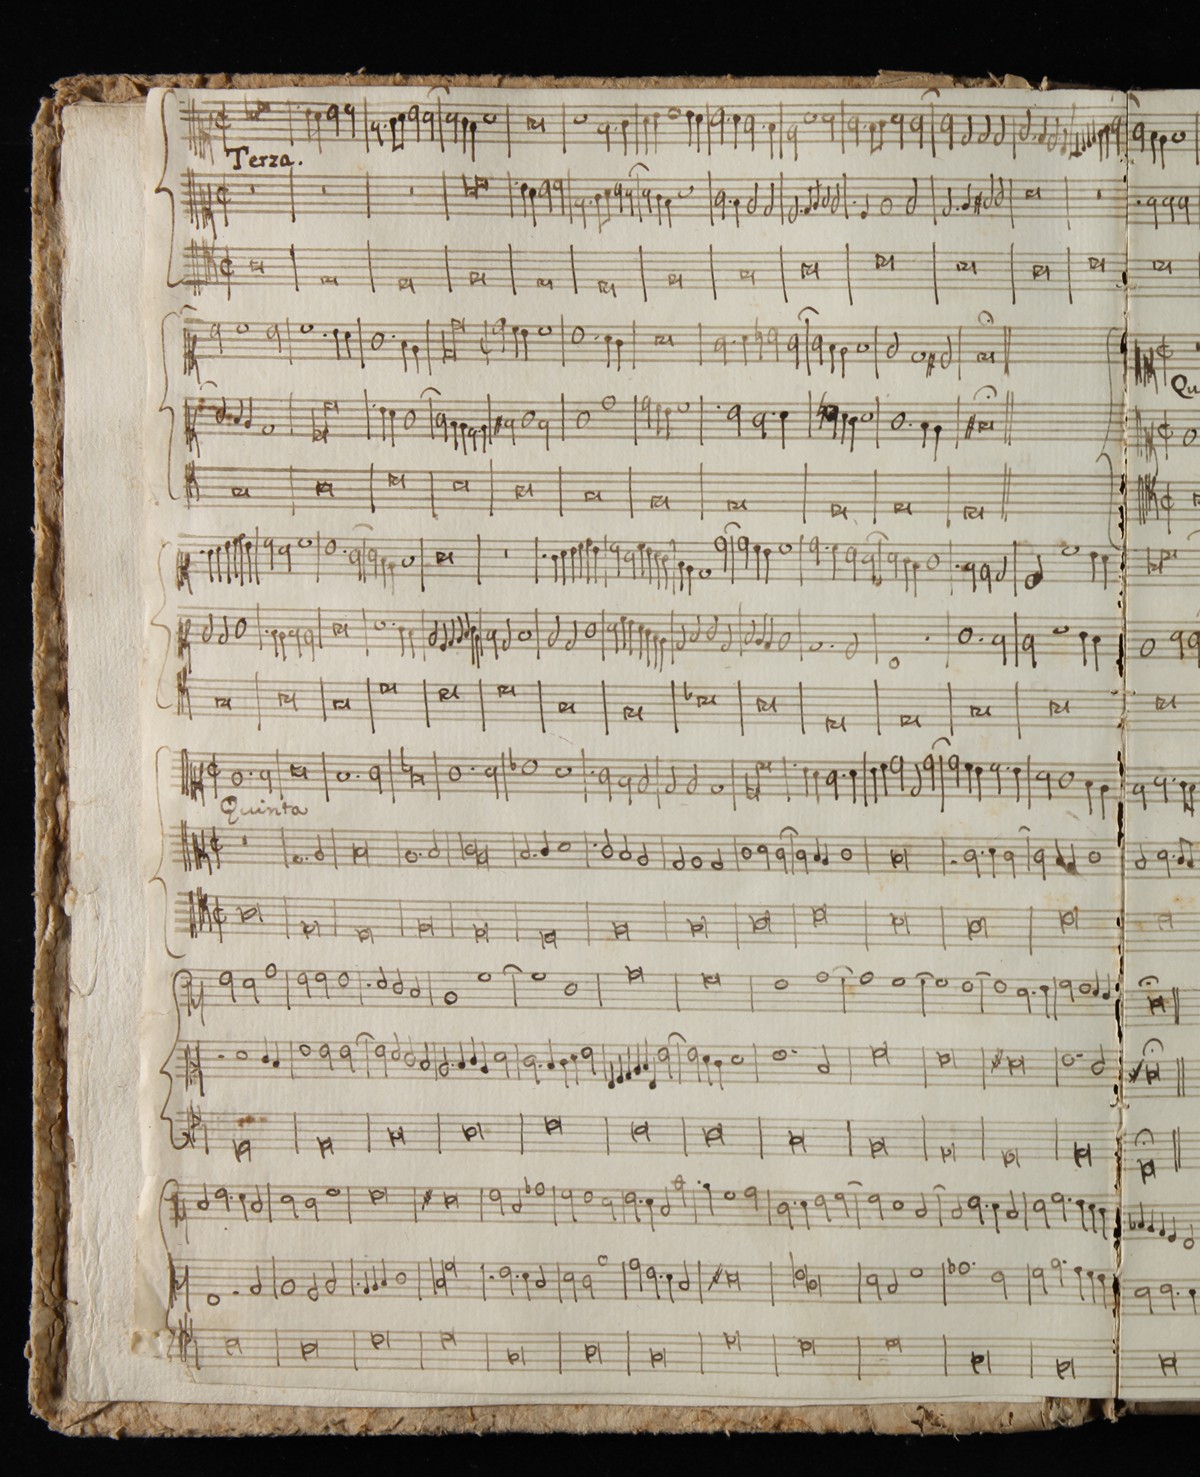 Terza.
Qu
Quinta